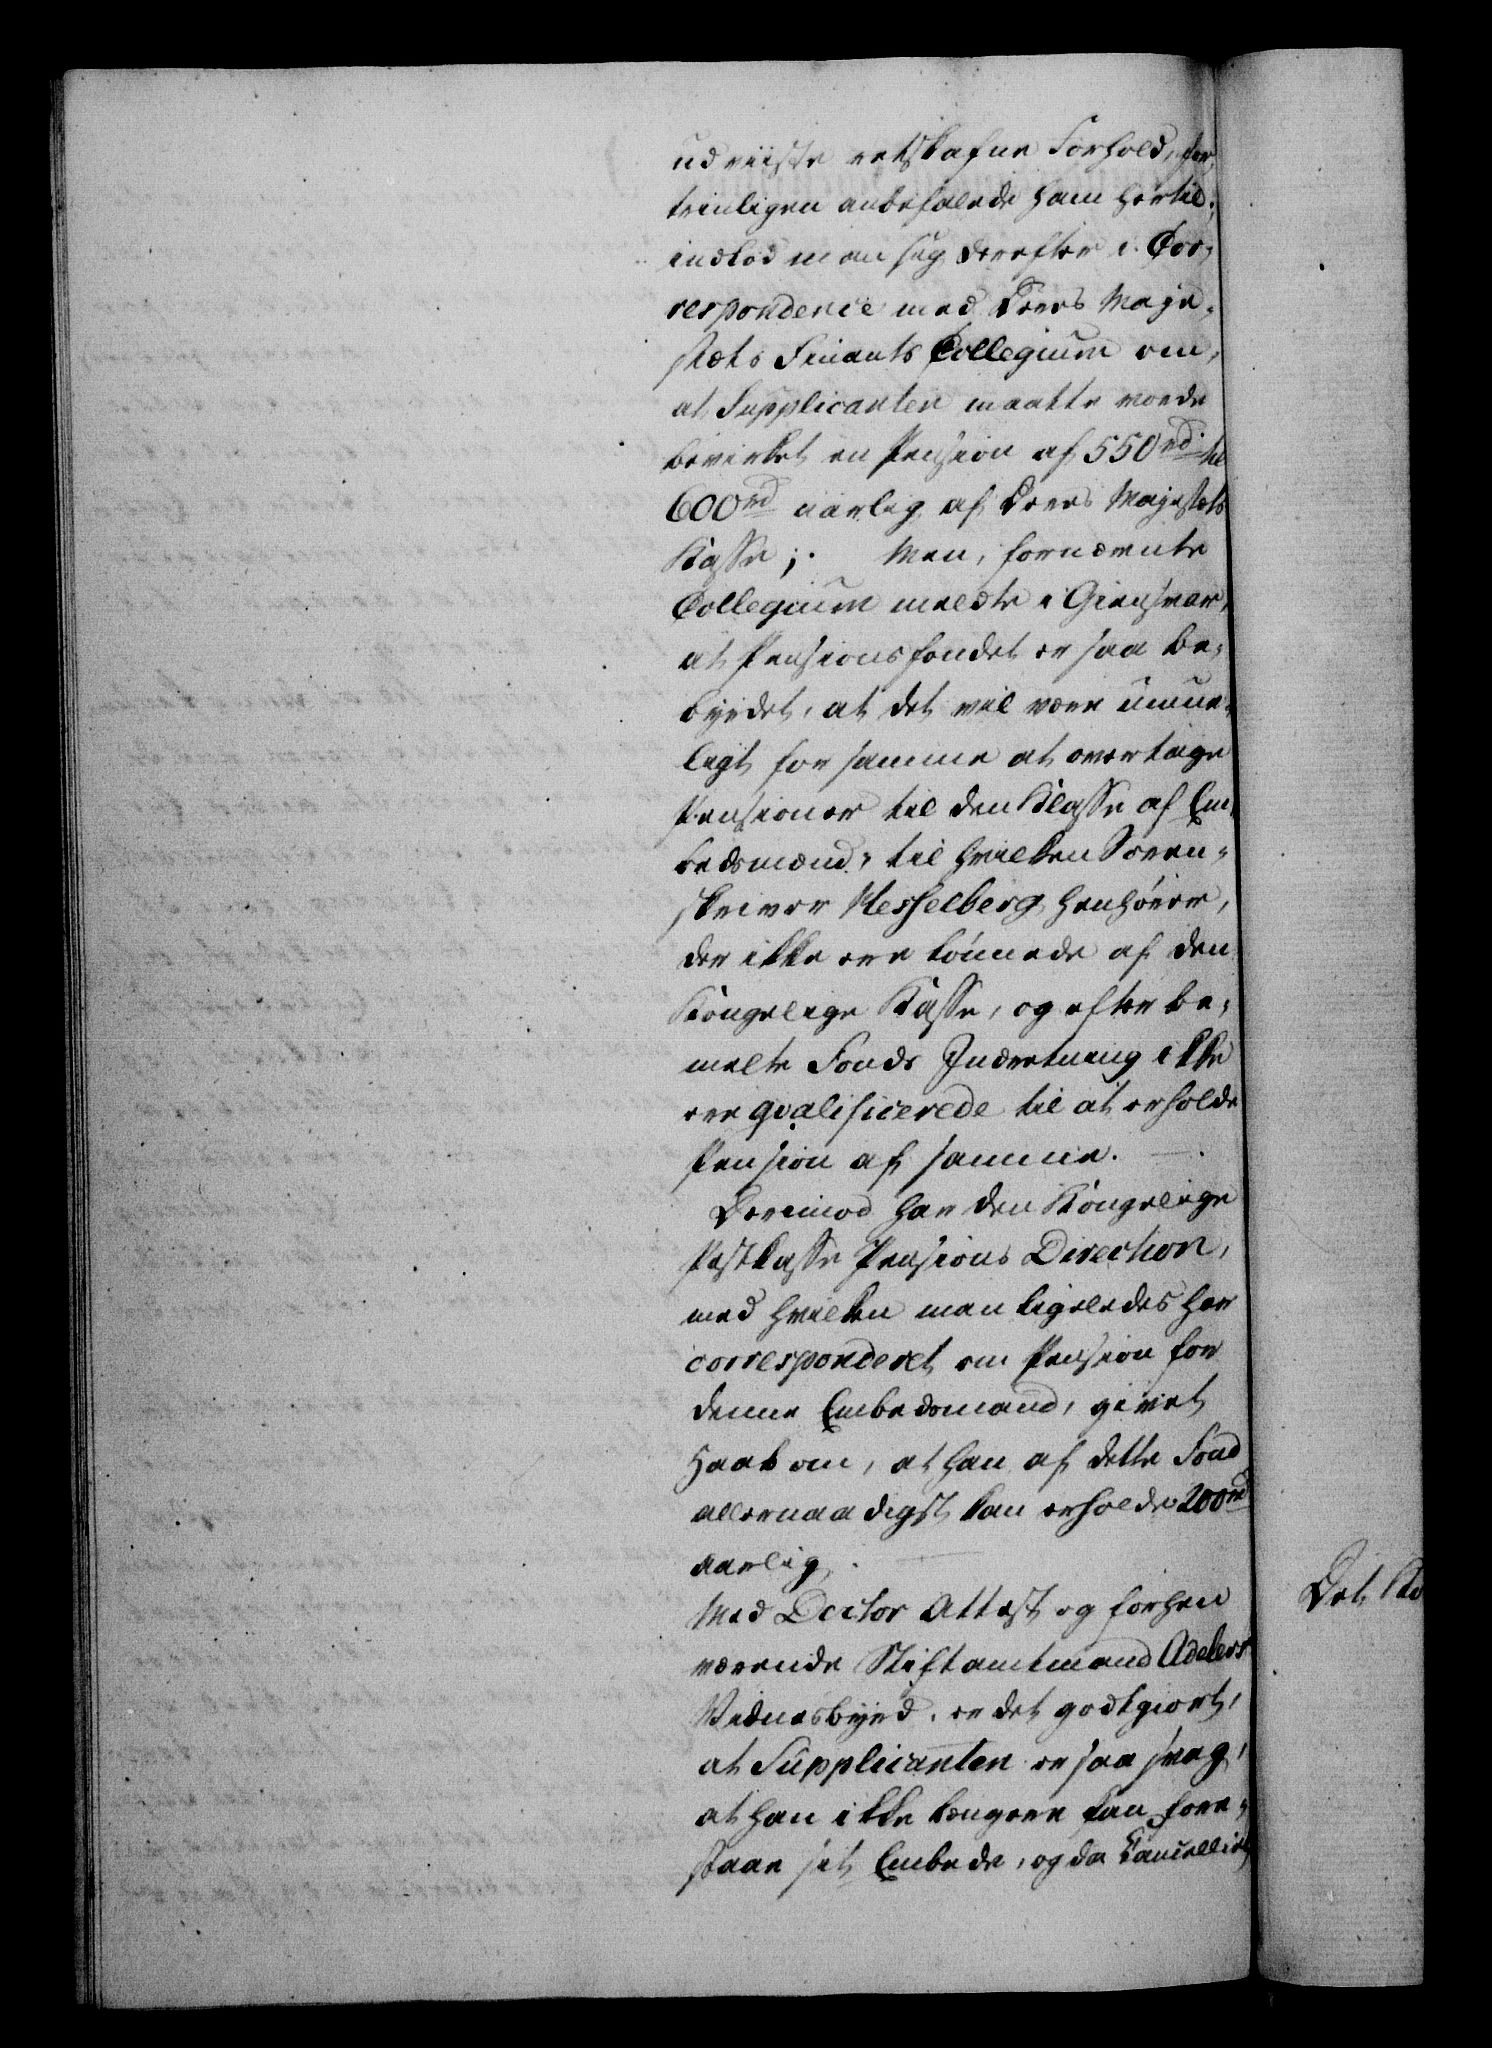 udviiste retskafne Forhold, for,
trinligen anbefalede ham hertil;
indlod man sig derefter i Cor,
respondence med Deres Maje,
stæts Finants Collegium om,
at Supplicanten maatte vorde
bevirket en Pension af 550 rd til
600 rd aarlig af Deres Majestæts
Kasse; Men, fornævnte
Collegium meldte i Giensvar,
at Pensionsfondet er saa be,
byrdet, at det vil være umue,
ligt for samme at overtage
Pensioner til den Klasse af Em,
bedsmænd, til hvilken Soren,
skriver Hesselberg henhører,
der ikke ere lønnede af den
Kongelige Kasse, og efter be,
meldte Fonds Indretning ikke
ere qvalificerede til at erholde
Pension af samme.
Derimod har den Kongelige
Postkasse Pensions Direction,
med hvilken man ligeledes har
corresponderet om Pension for
denne Embedsmand, givet
Haab om, at han af dette Fond
allernaadigst kan erholde 200 rd
aarlig.
Med Doctor Attest og forhen
værende Stiftamtmand Adelers
Vidnesbyrd, er det godtgiort,
at Supplicanten er saa svag,
at han ikke længere kan fore,
staae sit Embede, og da Cancelliet
Det Ko